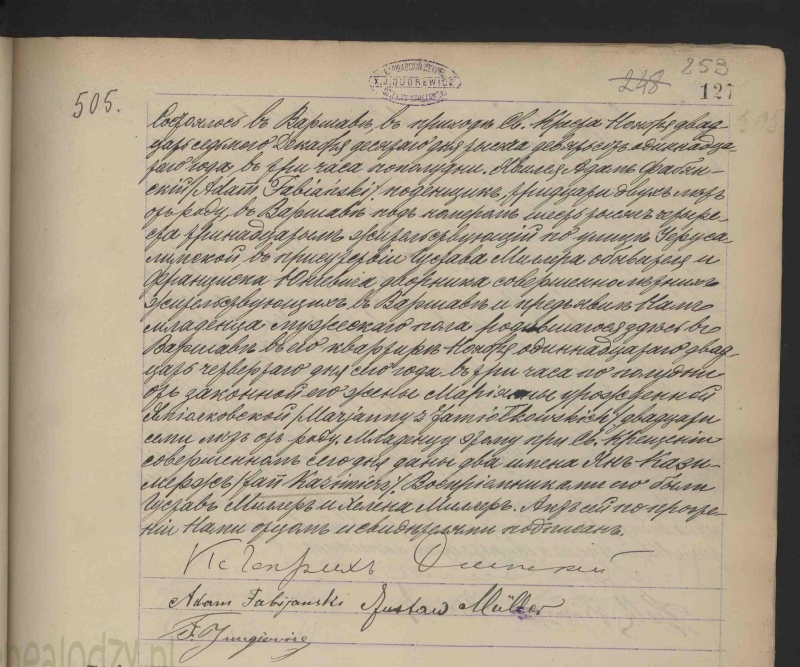 253
248
127
505.
Состоялось въ Варшавѣ, въ приходѣ Св. Креста Ноября двад-
цать седьмого Декабря десятого дня тысяча девятьсотъ одиннадца-
того года, въ три часа пополудни. Явился Адамъ Фабян-
скій /Adam Fabiański/ поденщикъ, тридцати двухъ лѣтъ
отъ роду, въ Варшавѣ подъ номеромъ
тринадцатымъ жительствующій по улицѣ Іеруса-
лимской, въ присутствіи Густава Миллера обывателя и
Франциска дворника совершеннолѣтнихъ
жительствующихъ въ Варшавѣ и предъявилъ Намъ
младенца мужескаго пола родившагося здѣсь въ
Варшавѣ въ его квартирѣ Ноября одиннадцатаго двад-
цать четвертаго дня сего года въ три часа по полудни
отъ законной его жены Маріянны урожденной
/Marjanny z Jamiołkowskich/ двадцати
семи лѣтъ отъ роду. Младенцу этому при Св. Крещеніи
совершенномъ сегодня даны два имена Янъ Кази-
мержъ /Jan Kazimierz/. Воспріемниками его были
Густавъ Миллеръ и Хелена Миллеръ. Актъ сей по прочте-
ніи Нами отцомъ и свидѣтелями подписанъ.
Кс Генрихъ
Adam Fabijanski Gustaw Müller